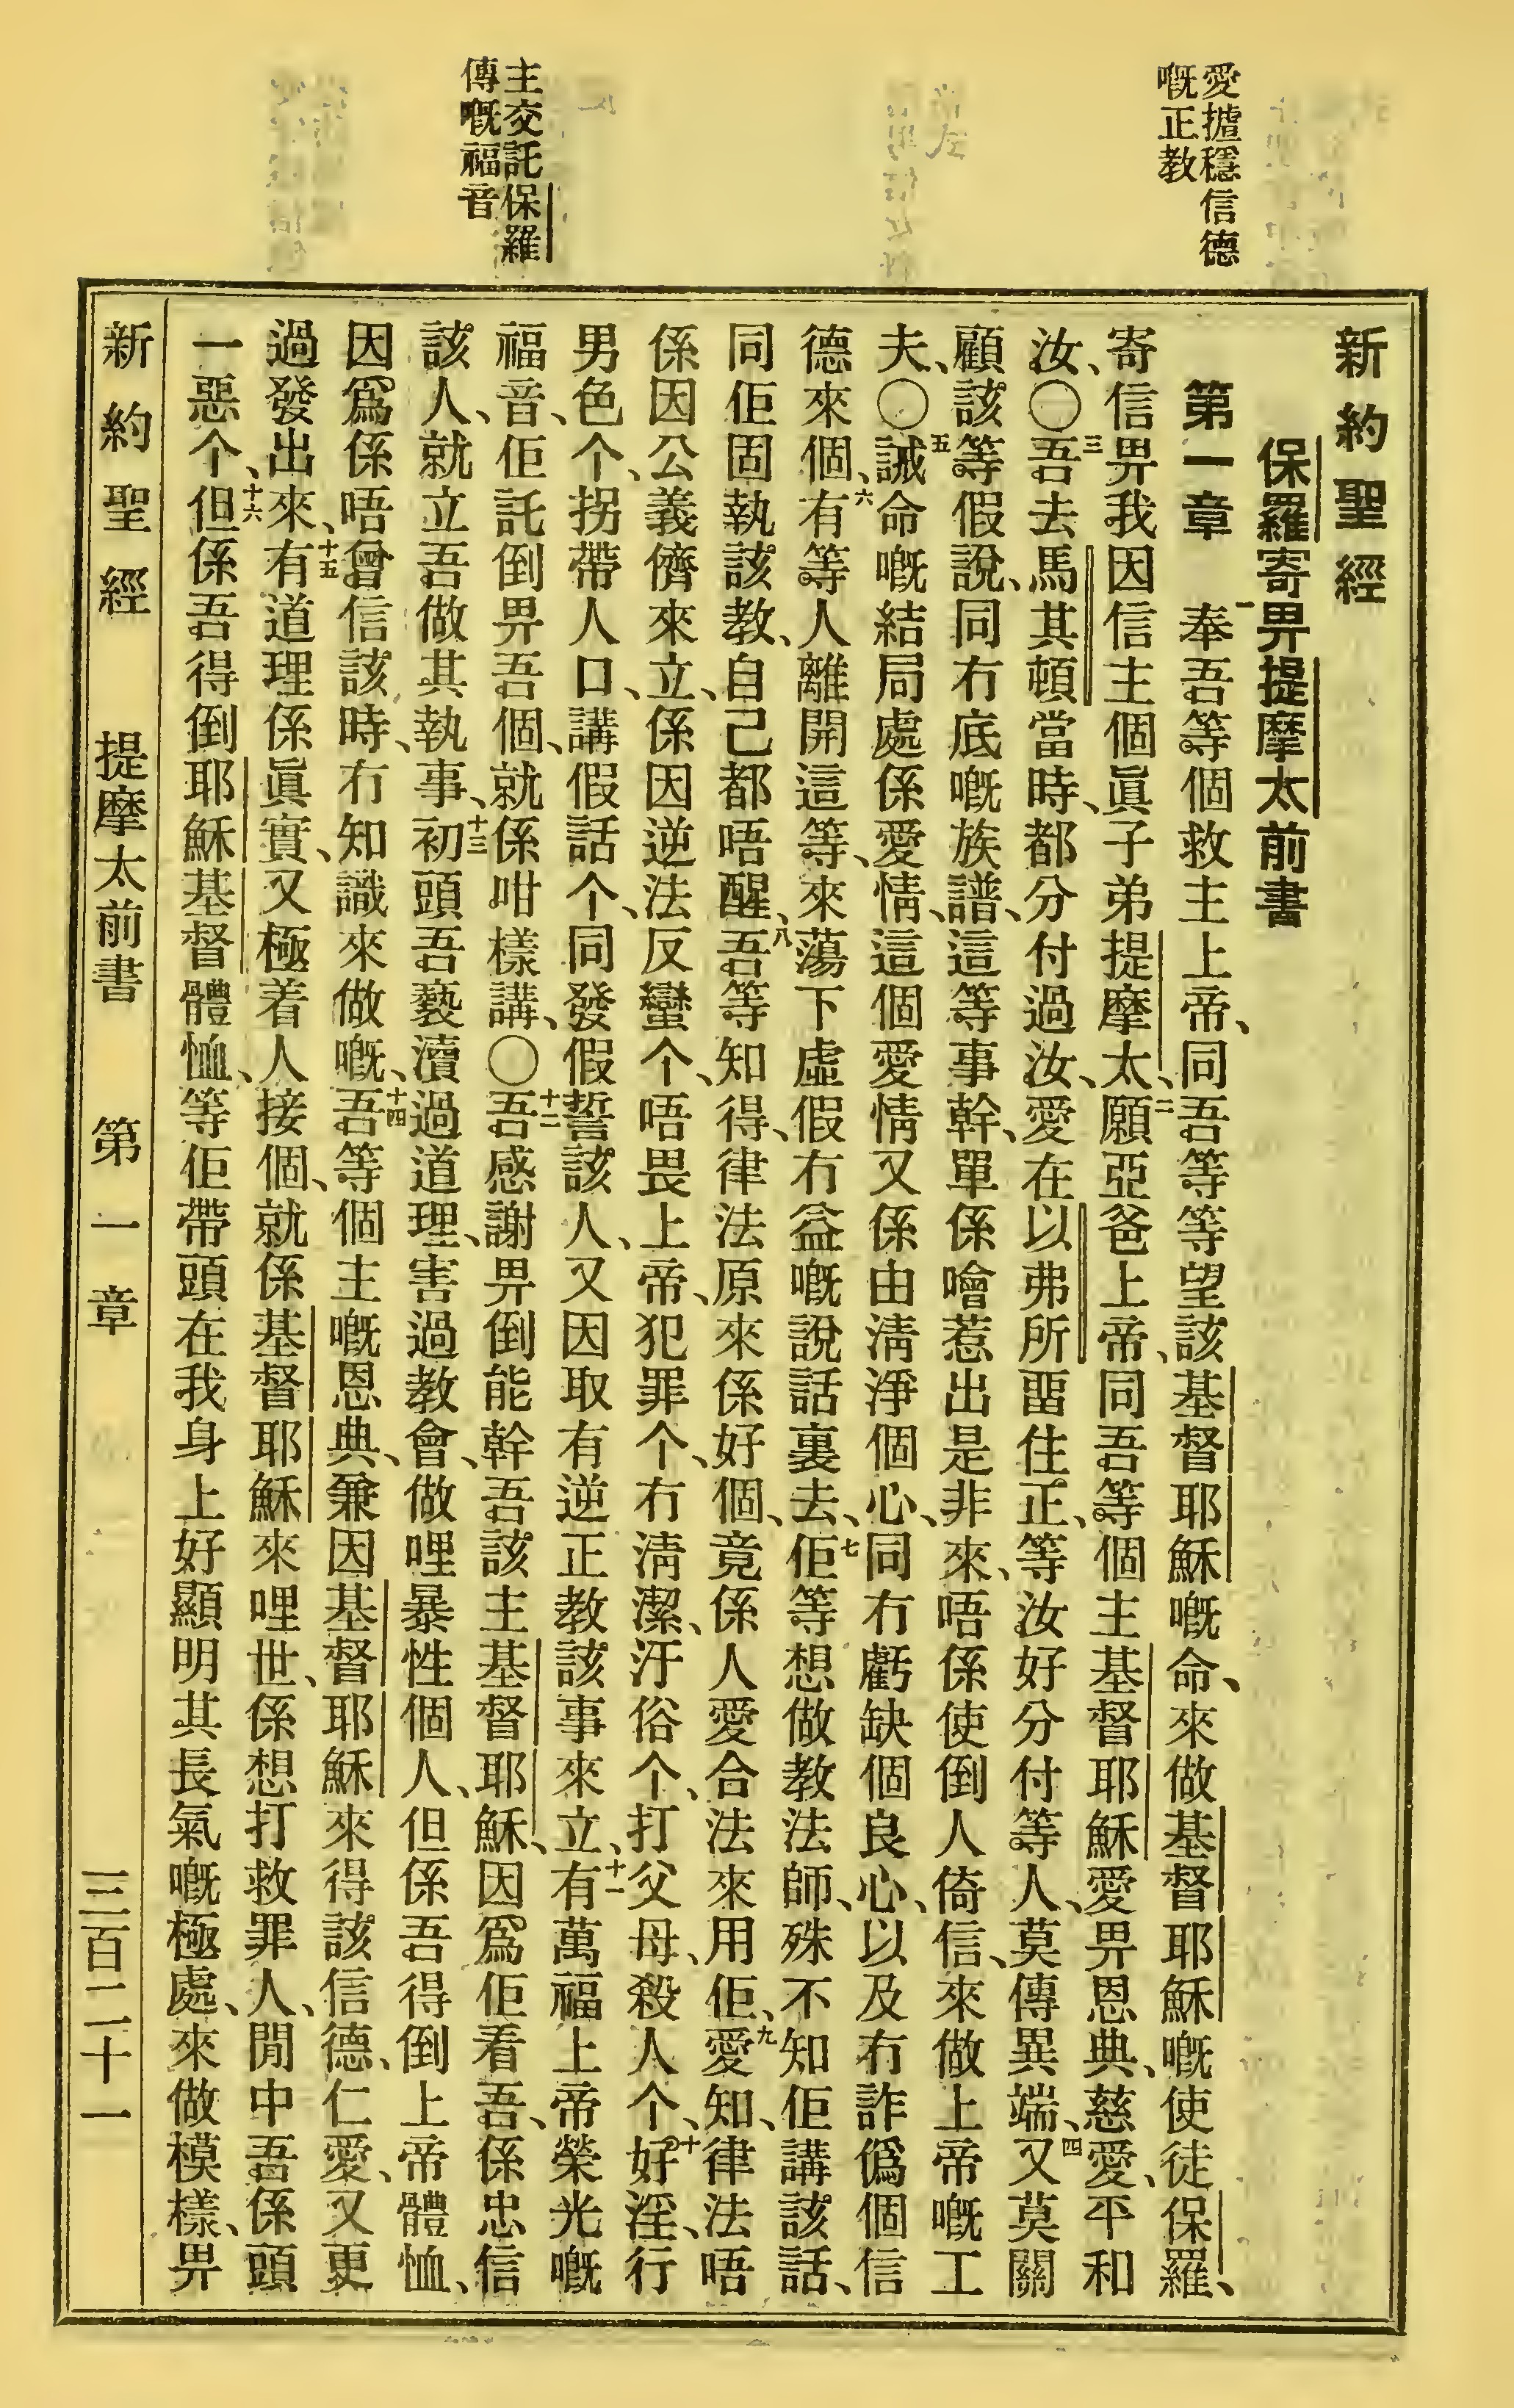 愛攎穩信德
嘅正教
主交託保羅
傳嘅福音
新約聖經
保羅寄畀提摩太前書
第一章 一奉吾等個救主上帝、同吾等等望該基督耶穌嘅命、來做基督耶穌嘅使徒保羅、
寄信畀我因信主個眞子弟提摩太、二願亞爸上帝、同吾等個主基督耶穌愛畀恩典、慈愛、平和
汝、〇三吾去馬其頓當時、都分付過汝、愛在以弗所畱住正、等汝好分付等人、莫傳異端、四又莫關
顧該等假說、同冇底嘅族譜、這等事幹、單係噲惹出是非來、唔係使倒人倚信、來做上帝嘅工
夫、〇五誡命嘅結局處係愛情、這個愛情又係由淸淨個心、同冇虧缺個良心、以及冇詐僞個信
德來個、六有等人離開這等、來蕩下虛假冇益嘅說話裏去、七佢等想做教法師、殊不知佢講該話、
同佢固執該教、自己都唔醒、八吾等知得、律法原來係好個、竟係人愛合法來用佢、九愛知、律法唔
係因公義儕來立、係因逆法反蠻个、唔畏上帝、犯罪个、冇淸潔、汙俗个、打父母、殺人个、十好淫、行
男色个、拐帶人口、講假話个、同發假誓該人、又因取有逆正教該事來立、十一有萬福上帝榮光嘅
福音、佢託倒畀吾個、就係咁樣講、〇十二吾感謝畀倒能幹吾該主基督耶穌、因爲佢看吾、係忠信
該人、就立吾做其執事、十三初頭吾褻瀆過道理、害過教會、做哩暴性個人、但係吾得倒上帝體恤、
因爲係唔曾信該時、冇知識來做嘅、十四吾等個主嘅恩典、兼因基督耶穌來得該信德、仁愛、又更
過發出來、十五有道理係眞實、又極着人接個、就係基督耶穌來哩世、係想打救罪人、閒中吾係頭
一惡个、十六但係吾得倒耶穌基督體恤、等佢帶頭在我身上好顯明其長氣嘅極處、來做模樣、畀
新約聖經 提摩太前書 第一章 三百二十一